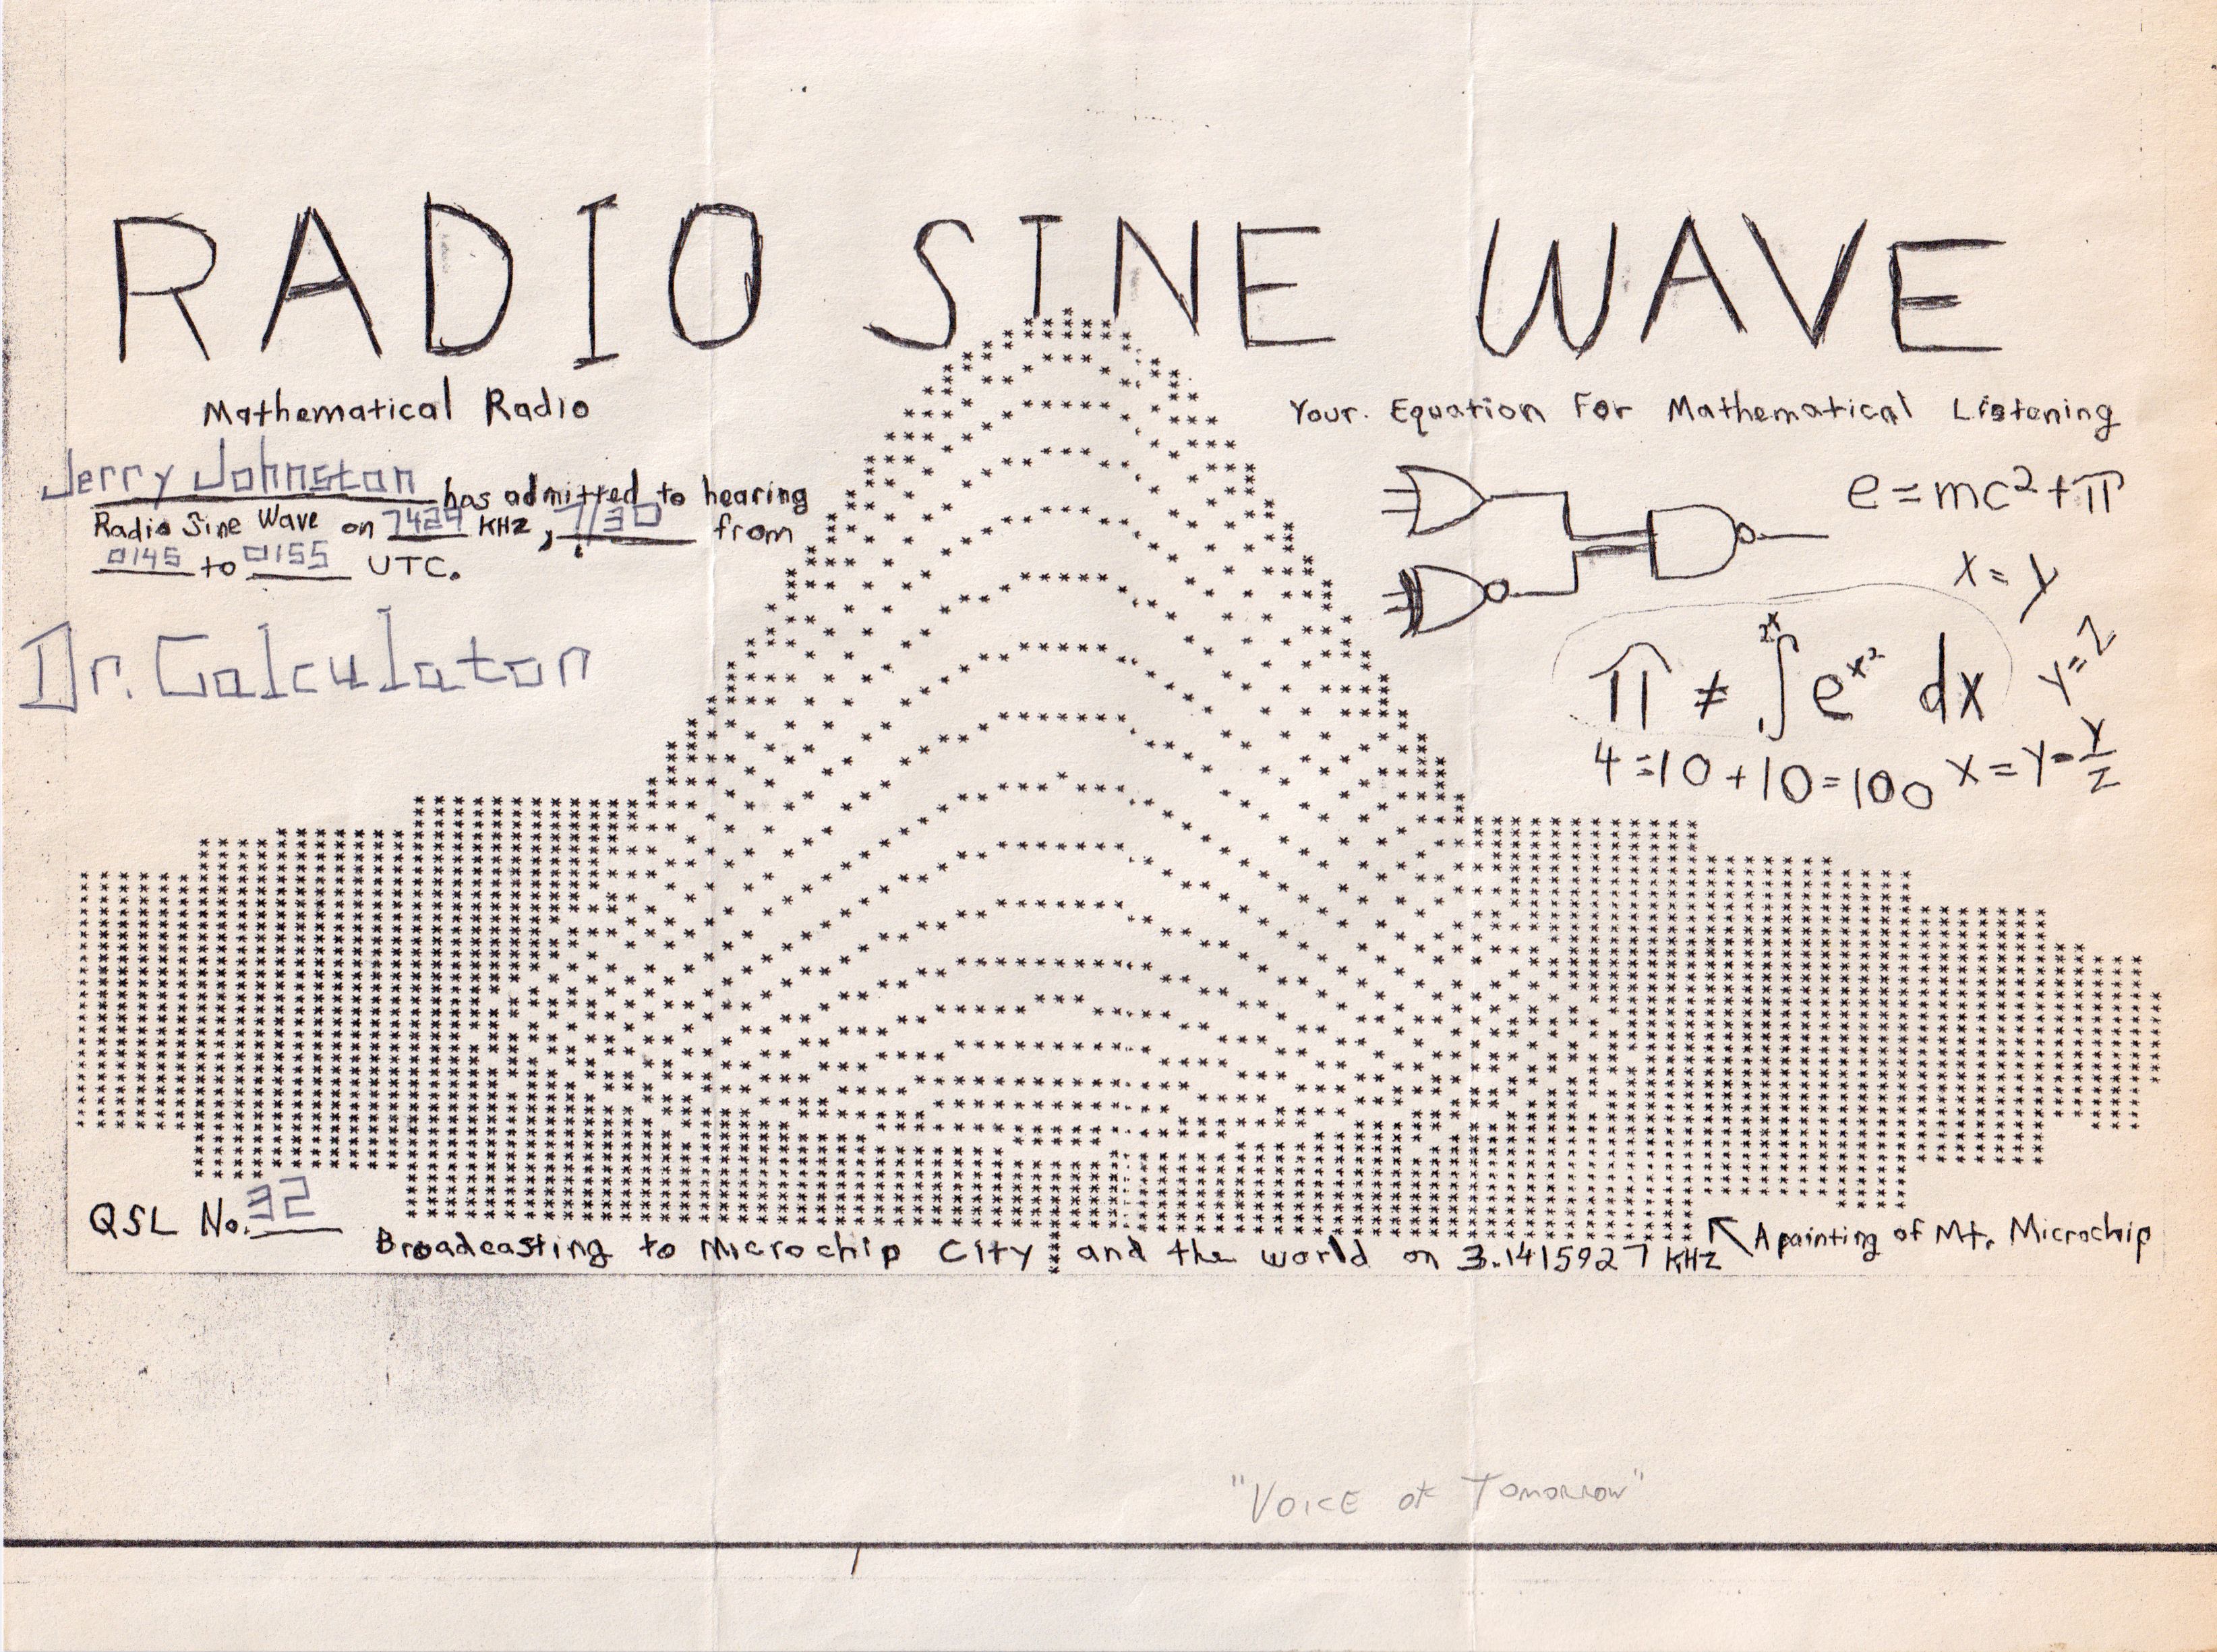 RADIO SINE WAVE
Mathematical Radio
Your. Equation For Mathematical Listening
Jerry Johnston has admitted to hearing
Radio Sine Wave on 7429 KHz, 7/30 from
0145 to 0155 UTC.
Dr. Calculator
e=mc²+π
x=y
π ≠ ∫²ˣ e^x² dx
y=z
4=10+10=100
x=y-y/z
QSL No. 32
Broadcasting to Microchip City and the world on 3.1415927 KHz
A painting of Mt. Microchip
"Voice of Tomorrow"